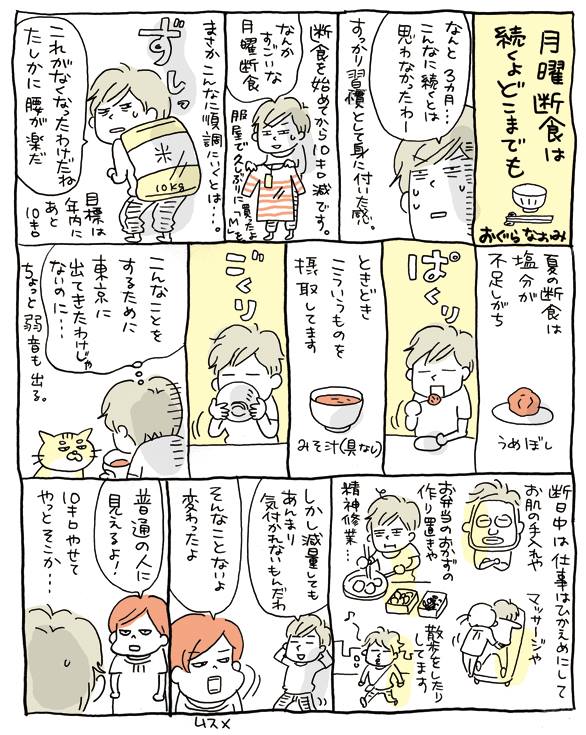 月曜断食は
続くよどこまでも
おぐらなおみ
なんと3カ月…
こんなに続くとは
思わなかったわー
すっかり習慣として身に付いた感。
断食を始めてから10キロ減です。
なんか
すごいな
月曜断食
服屋で久しぶりに「M」を
買えたよ
まさかこんなに順調にいくとは…。
ずしっ
米
10kg
これがなくなったわけだね
たしかに腰が楽だ
目標は
年内に
あと
10キロ
夏の断食は
塩分が
不足しがち
うめぼし
ぱくり
ときどき
こういうものを
摂取してます
みそ汁(具なし)
ごくり
こんなことを
するために
東京に
出てきたわけじゃ
ないのに…
ちょっと弱音も出る。
断日中は仕事はひかえめにして
お肌の手入れや
マッサージや
お弁当のおかずの
作り置きや
精神修業…
散歩をしたり
してます
しかし減量しても
あんまり
気付かれないもんだね
そんなことないよ
変わったよ
ムスメ
普通の人に
見えるよ!
10キロやせて
やっとそこか…